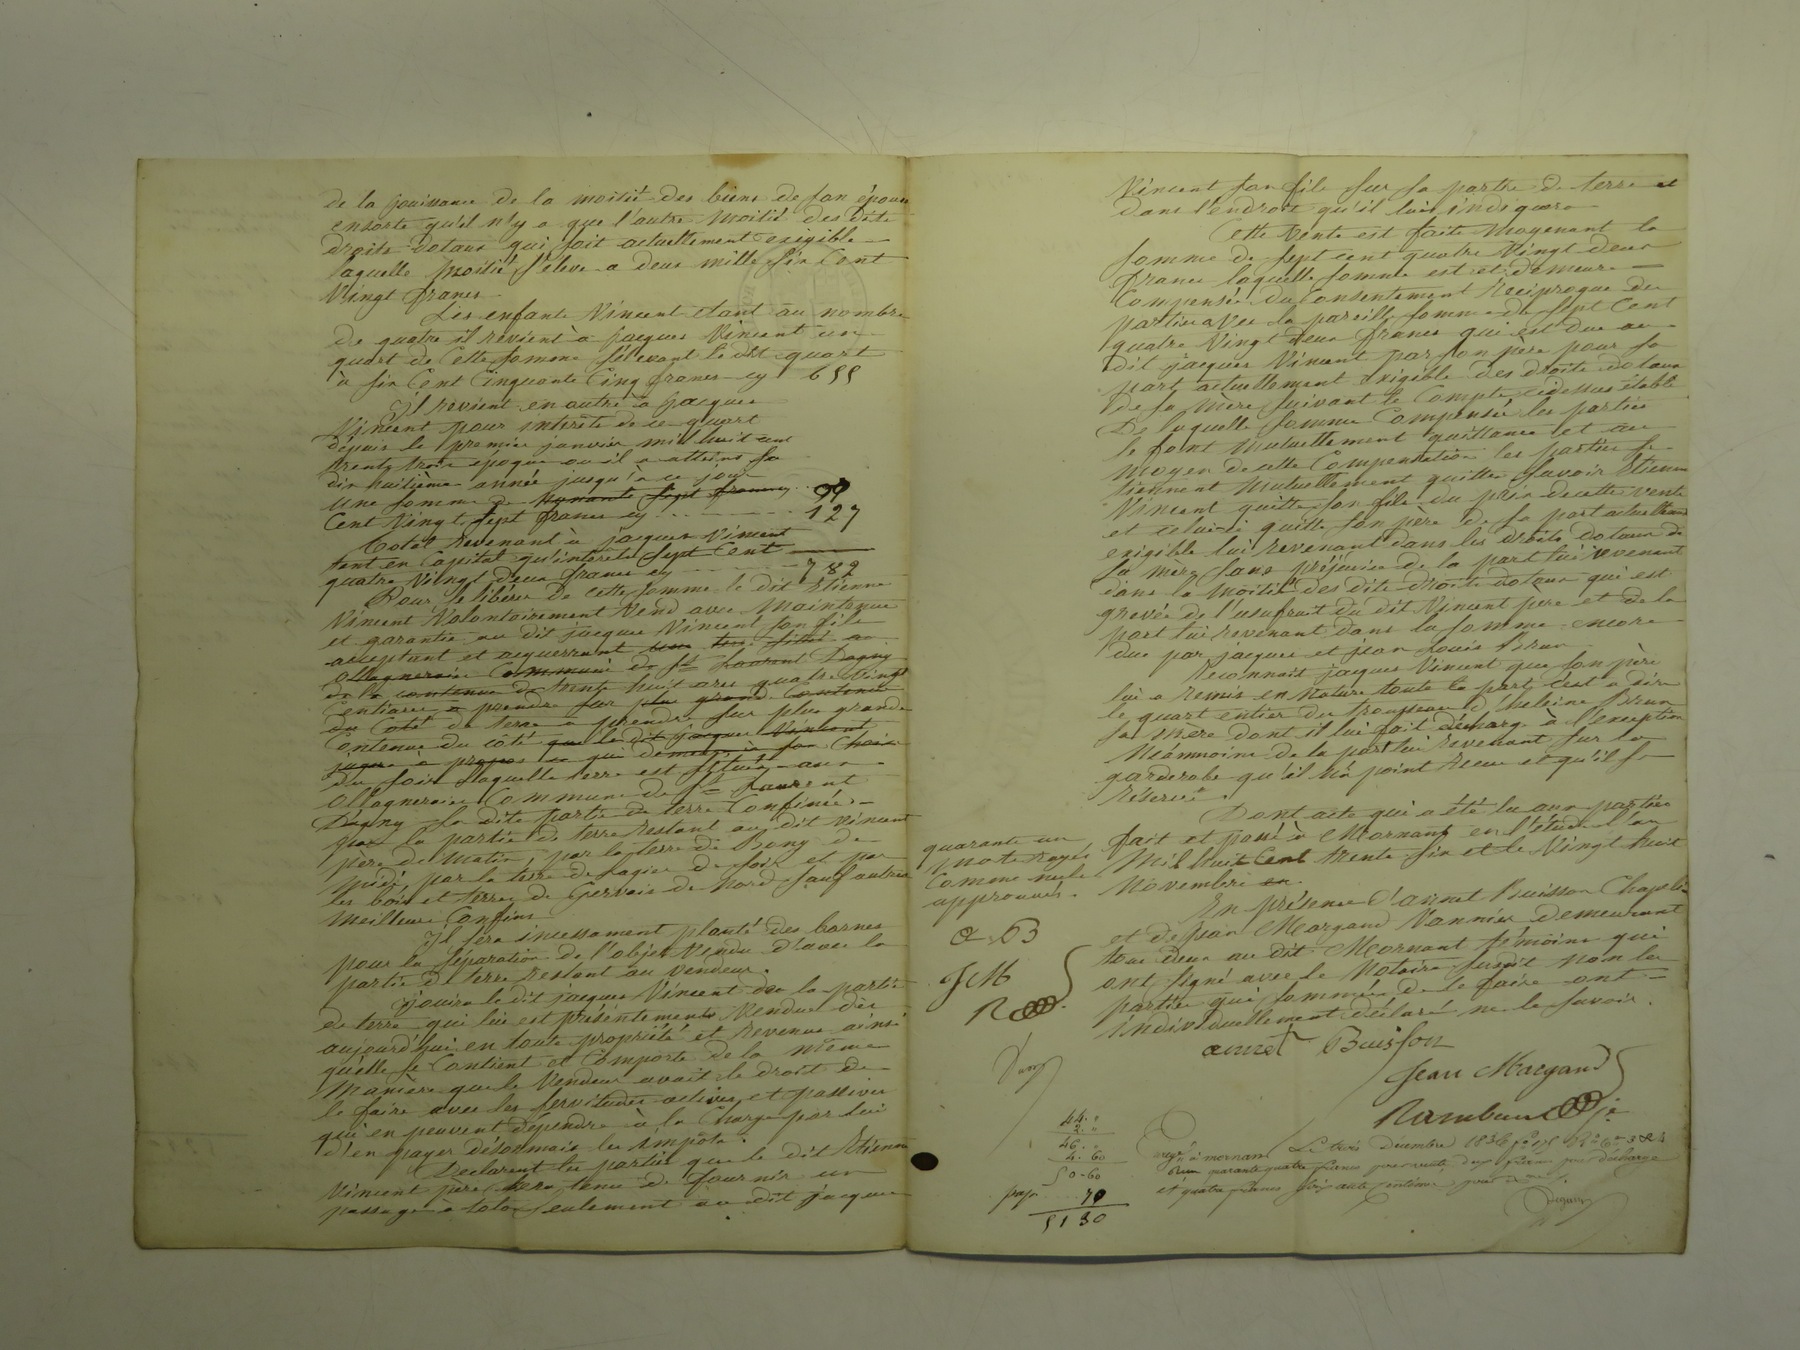 de la jouissance de la moitié des biens de son épouse
ensorte qu'il n'y a que l'autre moitié des dits
droits dotaux qui soit actuellement exigible
laquelle moitié s'élève a deux mille six cent
vingt francs
Les enfants Vincent etant au nombre
de quatre il revient à jacques Vincent un
quart de cette somme s'élevant le dit quart
à six cent cinquante cinq francs cy 655
Il revient en outre à jacques
Vincent pour intérêts de ce quart
depuis le premier janvier mil huit cent
trente trois époque ou il a atteint sa
dix huitieme année jusqu'à ce jour
une somme de nonante sept francs cy 97
cent vingt sept francs cy 127
Total revenant à jacques Vincent
tant en capital qu'intérêts sept cent
quatre vingt deux francs cy 782
Pour se libérer de cette somme le dit Etienne
Vincent volontairement vend avec maintenue
et garantie au dit jacques Vincent son fils
acceptant et acquerrant
allagneraie commune de St Laurent Dagny
de la contenue de trente huit ares quatre vingt
centiares à prendre sur plus grande contenue
du coté de terre à prendre sur plus grande
contenue du côté que le dit jacques Vincent
jugera a propos
du soir laquelle terre est située aux
allagneraies commune de St Laurent
Dagny la dite partie de terre confinée
par la partie de terre restant au dit Vincent
père de matin par la terre de Bony de
midi, par la terre de Lagier de soir et par
les bois et terres de Gervais de Nord sauf autres
meilleurs confins
Il sera incessament planté des bornes
pour la séparation de l'objet vendu d'avec la
partie de terre restant au vendeur.
Jouira le dit jacques Vincent de la partie
de terre qui lui est présentement vendue dès
aujourd'hui en toute propriété et revenu ainsi
qu'elle se contient et comporte de la même
manière que le vendeur avait le droit de
le faire avec les servitudes actives et passives
qui en peuvent dépendre à la charge par lui
d'en payer désormais les impôts.
Déclarent les parties que le dit Etienne
Vincent père sera tenu de fournir un
passage à seulement au dit jacques
Vincent son fils sur sa partie de terre et
dans l'endroit qu'il lui indiquera
Cette vente est faite moyenant la
somme de sept cent quatre vingt deux
francs laquelle somme est et demeure
compensée du consentement réciproque des
parties avec la pareille somme de sept cent
quatre vingt deux francs qui est due au
dit jacques Vincent par son père pour sa
part actuellement exigible des droits dotaux
de sa mère suivant le compte cidessus établi
De laquelle somme compensée les parties
se font mutuellement quittance et au
moyen de cette compensation les parties se
tiennent mutuellement quittes savoir Etienne
Vincent quitte son fils du prix de cette vente
et celui-ci quitte son père de sa part actuellement
exigible lui revenant dans les droits dotaux de
sa mère sans préjudice de la part lui revenant
dans la moitié des dits droits dotaux qui est
grevée de l'usufruit du dit Vincent père et de la
part lui revenant dans la somme encore
due par jacques et jean Louis Brun
Reconnait jacques Vincent que son père
lui a remis en nature toute la part c'est a dire
le quart entier du trousseau d'helène Brun
sa mère dont il lui fait décharge à l'exception
néanmoins de la part lui revenant sur la
garderobe qu'il n'a point reçue et qu'il se
réserve.
Dont acte qui a été lu aux parties
fait et passé à Mornant en l'étude l'an
mil huit cent trente six et le vingt huit
Novembre
En présence d'annet Buisson Chapelier
et de jean Margand Vannier demeurant
tous deux au dit Mornant témoins qui
ont signé avec le Notaire susdit non les
parties qui sommées de le faire ont
individuellement déclaré ne le savoir.
quarante un
mots rayés
comme nuls
approuvés.
a B
JM
R
annet Buisson
Jean Margand
44. "
2. "
46. "
4. 60
50-60
70
51 30
Enregé à mornant Le trois Décembre 1836
Reçu quarante quatre francs pour vente deux francs pour décharge
et quatre francs soixante centimes pour